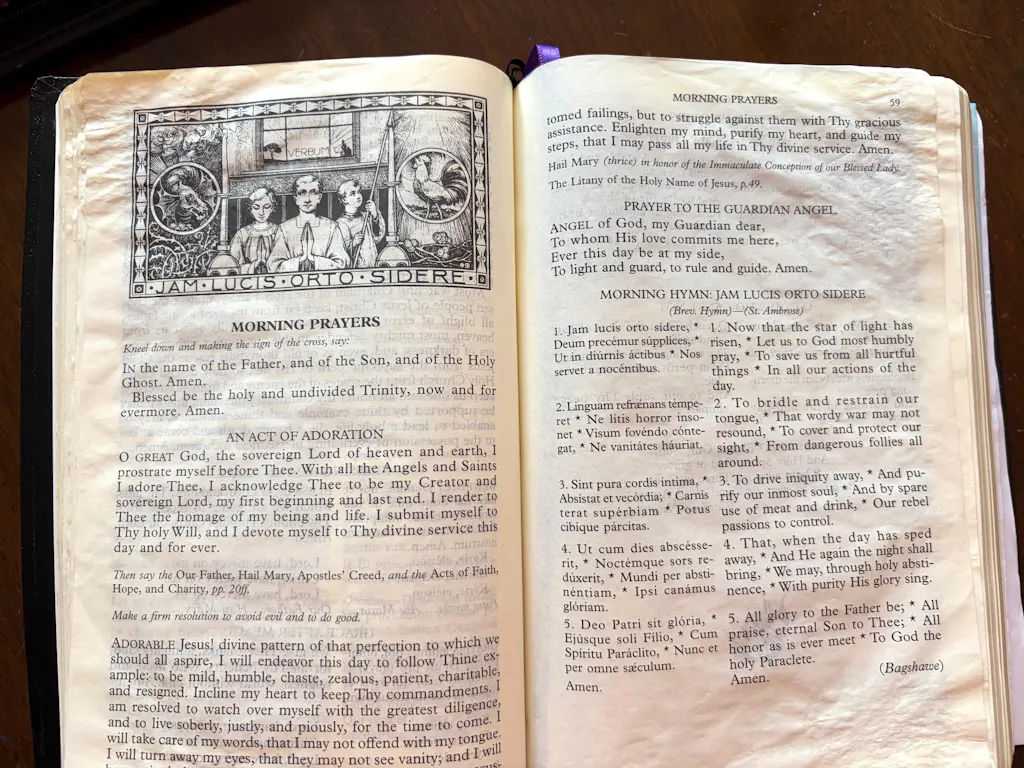 VERBUM
JAM · LUCIS · ORTO · SIDERE
MORNING PRAYERS
Kneel down and making the sign of the cross, say:
IN the name of the Father, and of the Son, and of the Holy
Ghost. Amen.
Blessed be the holy and undivided Trinity, now and for
evermore. Amen.
AN ACT OF ADORATION
O GREAT God, the sovereign Lord of heaven and earth, I
prostrate myself before Thee. With all the Angels and Saints
I adore Thee, I acknowledge Thee to be my Creator and
sovereign Lord, my first beginning and last end. I render to
Thee the homage of my being and life. I submit myself to
Thy holy Will, and I devote myself to Thy divine service this
day and for ever.
Then say the Our Father, Hail Mary, Apostles' Creed, and the Acts of Faith,
Hope, and Charity, pp. 20ff.
Make a firm resolution to avoid evil and to do good.
ADORABLE Jesus! divine pattern of that perfection to which we
should all aspire, I will endeavor this day to follow Thine ex-
ample: to be mild, humble, chaste, zealous, patient, charitable,
and resigned. Incline my heart to keep Thy commandments. I
am resolved to watch over myself with the greatest diligence,
and to live soberly, justly, and piously, for the time to come. I
will take care of my words, that I may not offend with my tongue.
I will turn away my eyes, that they may not see vanity; and I will
MORNING PRAYERS 59
tomed failings, but to struggle against them with Thy gracious
assistance. Enlighten my mind, purify my heart, and guide my
steps, that I may pass all my life in Thy divine service. Amen.
Hail Mary (thrice) in honor of the Immaculate Conception of our Blessed Lady.
The Litany of the Holy Name of Jesus, p.49.
PRAYER TO THE GUARDIAN ANGEL
ANGEL of God, my Guardian dear,
To whom His love commits me here,
Ever this day be at my side,
To light and guard, to rule and guide. Amen.
MORNING HYMN: JAM LUCIS ORTO SIDERE
(Brev. Hymn)—(St. Ambrose)
1. Jam lucis orto sídere, *
Deum precémur súpplices, *
Ut in diúrnis áctibus * Nos
servet a nocéntibus.
2. Linguam refrǽnans témpe-
ret * Ne litis horror inso-
net * Visum fovéndo cónte-
gat, * Ne vanitátes háuriat.
3. Sint pura cordis intima, *
Absistat et vecórdia; * Carnis
terat supérbiam * Potus
cibique párcitas.
4. Ut cum dies abscésse-
rit, * Noctémque sors re-
dúxerit, * Mundi per absti-
néntiam, * Ipsi canámus
glóriam.
5. Deo Patri sit glória, *
Ejúsque soli Fílio, * Cum
Spíritu Paráclito, * Nunc et
per omne sæculum.
Amen.
1. Now that the star of light has
risen, * Let us to God most humbly
pray, * To save us from all hurtful
things * In all our actions of the
day.
2. To bridle and restrain our
tongue, * That wordy war may not
resound, * To cover and protect our
sight, * From dangerous follies all
around.
3. To drive iniquity away, * And pu-
rify our inmost soul, * And by spare
use of meat and drink, * Our rebel
passions to control.
4. That, when the day has sped
away, * And He again the night shall
bring, * We may, through holy absti-
nence, * With purity His glory sing.
5. All glory to the Father be; * All
praise, eternal Son to Thee; * All
honor as is ever meet * To God the
holy Paraclete.
Amen.
(Bagshawe)